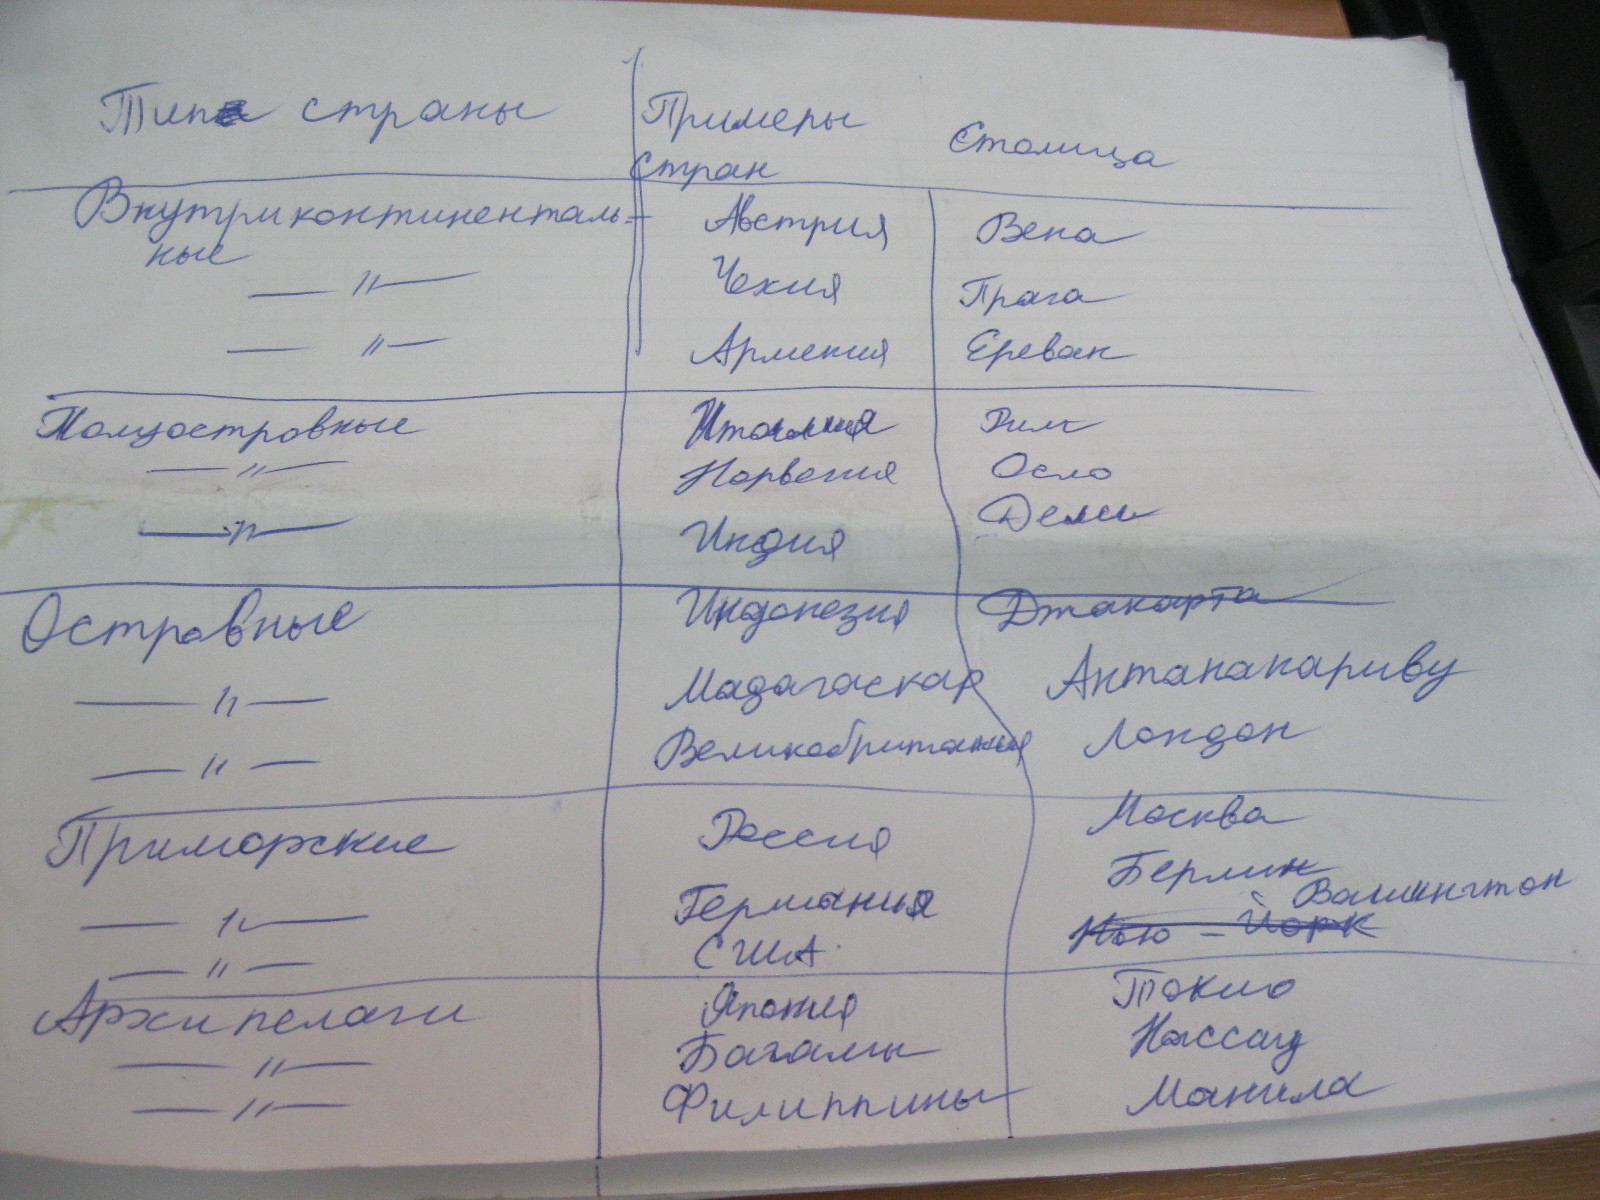 Тип страны Примеры Столица
Стран
Внутриконтиненталь- Австрия Вена
ные
— " — Чехия Прага
— " — Армения Ереван
Полуостровные Италия Рим
— " — Норвегия Осло
— " — Индия Дели
Островные Индонезия Джакарта
— " — Мадагаскар Антананариву
— " — Великобритания Лондон
Приморские Россия Москва
— " — Германия Берлин
— " — США Нью-Йорк Вашингтон
Архипелаги Япония Токио
— " — Багамы Нассау
— " — Филиппины Манила